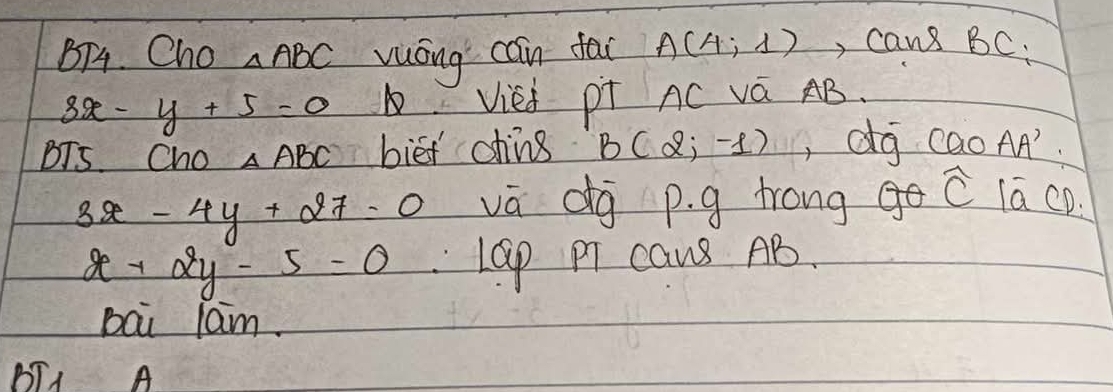 BT4. Cho △ABC vuông cân tại A(4; 1), cạnh BC:
3x - y + 5 = 0 Viết PT AC và AB.
BT5. Cho △ABC biết đỉnh B(2; -1), đg cao AA':
3x - 4y + 27 = 0 và đg p.g trong Ĉ là CD:
x + 2y - 5 = 0. Lập PT cạnh AB.
Bài làm.
BT1 A